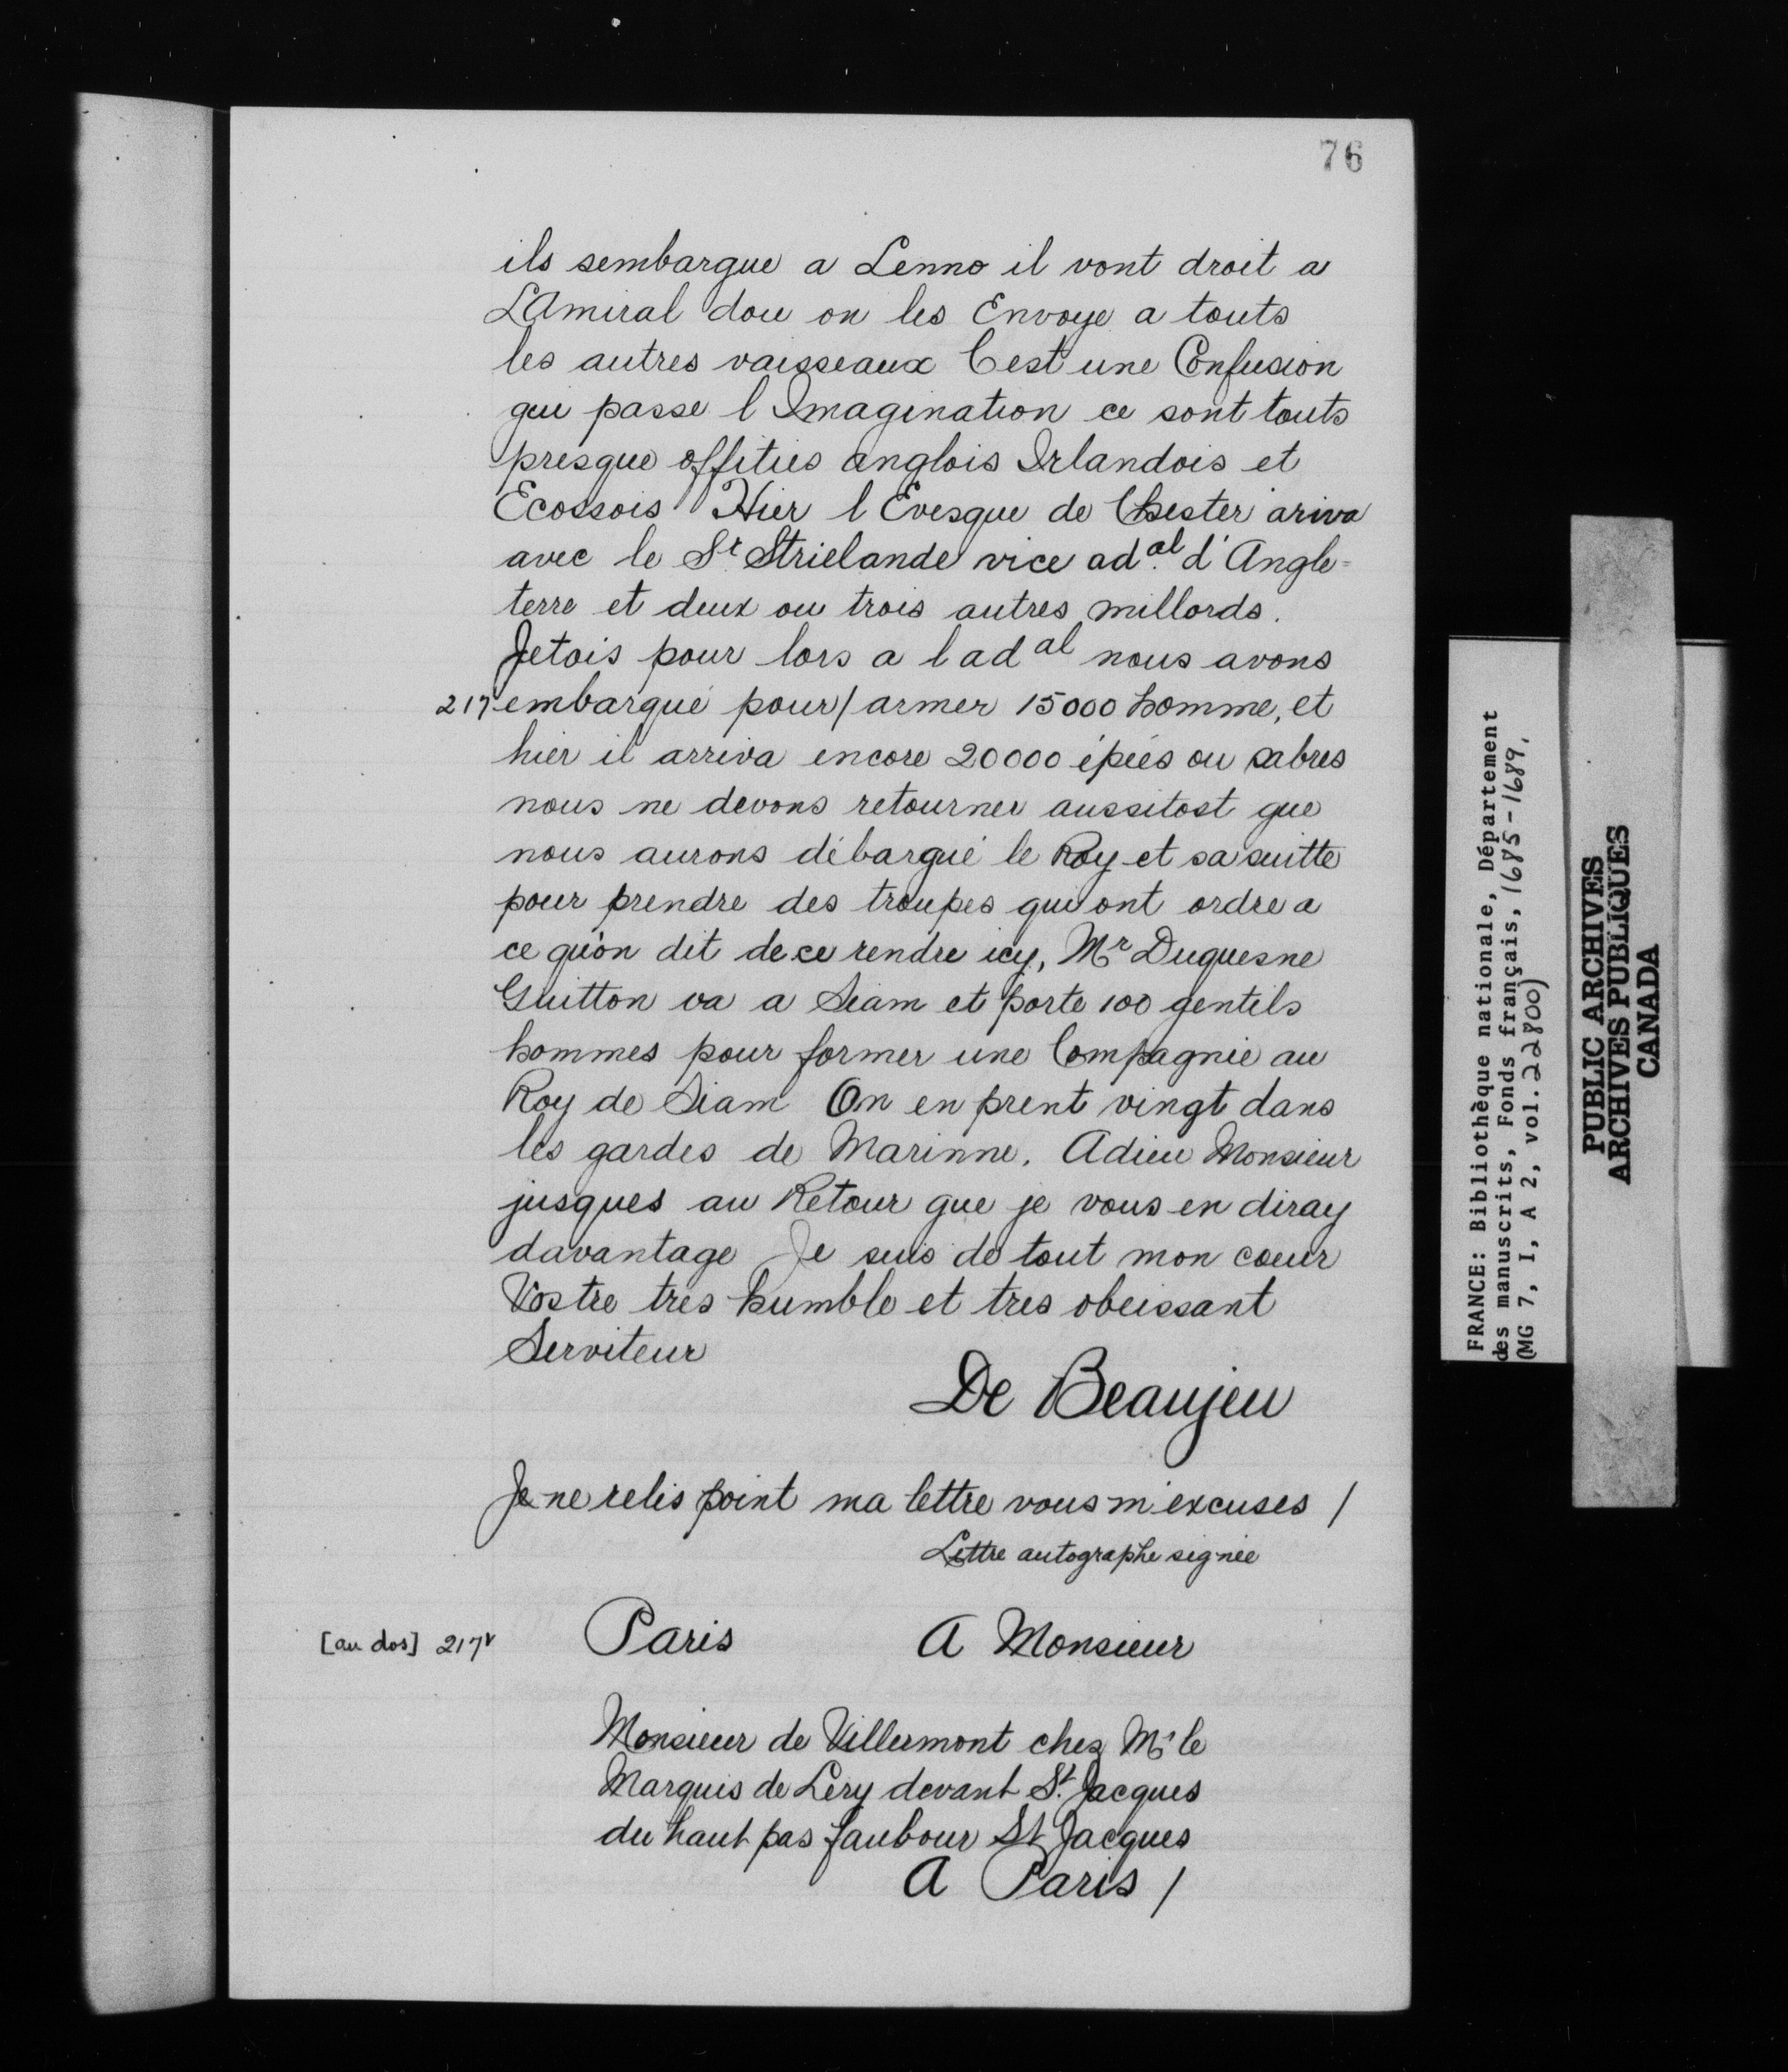 76
ils sembarque a Lenno il vont droit a
LAmiral dou on les Envoye a touts
les autres vaisseaux C est une Confusion
qui passe l Imagination ce sont touts
presque offities anglois Irlandois et
Ecossois Hier l Evesque de Chester ariva
avec le Sr Strielande vice ad.al d'Angle=
terre et deux ou trois autres millords.
Jetois pour lors a l ad al nous avons
217 embarqué pour/armer 15000 homme, et
hier il arriva encore 20000 épées ou sabres
nous ne devons retourner aussitost que
nous aurons débarqué le Roy et sa suitte
pour prendre des troupes qui ont ordre a
ce qu'on dit de ce rendre icy, Mr Duquesne
Guitton va a Siam et porte 100 gentils
hommes pour former une Compagnie au
Roy de Siam On en prent vingt dans
les gardes de Marinne. Adieu Monsieur
jusques au Retour que je vous en diray
davantage Je suis de tout mon coeur
Vostre tres humble et tres obeissant
Serviteur
De Beaujeu
Je ne relis point ma lettre vous m'excuses /
Lettre autographe signée
[au dos] 217v Paris A Monsieur
Monsieur de Villermont chez Mr le
Marquis de Lery devant St. Jacques
du haut pas faubour St Jacques
A Paris /
FRANCE: Bibliothèque nationale, Département
des manuscrits, Fonds français, 1685-1689.
(MG 7, I, A 2, vol. 22800)
PUBLIC ARCHIVES
ARCHIVES PUBLIQUES
CANADA